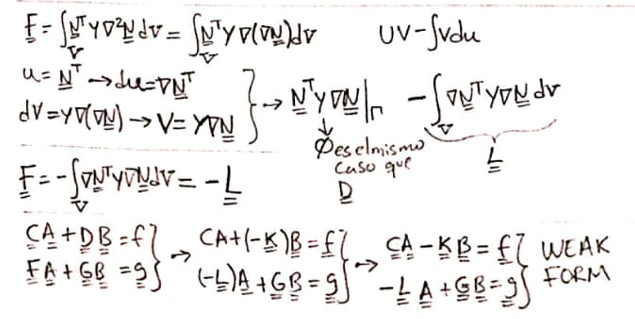 F = ∫_V N^T γ ∇²N dv = ∫_V N^T γ ∇(∇N) dv    UV - ∫vdu
u = N^T → du = ∇N^T
dV = γ∇(∇N) → V = γ∇N } → N^T γ ∇N |_Γ - ∫_V ∇N^T γ ∇N dv
∅ es el mismo caso que D    L
F = -∫_V ∇N^T γ ∇N dV = -L
CA + DB = f
FA + GB = g } → CA + (-K)B = f
(-L)A + GB = g } → CA - KB = f
-LA + GB = g } WEAK FORM